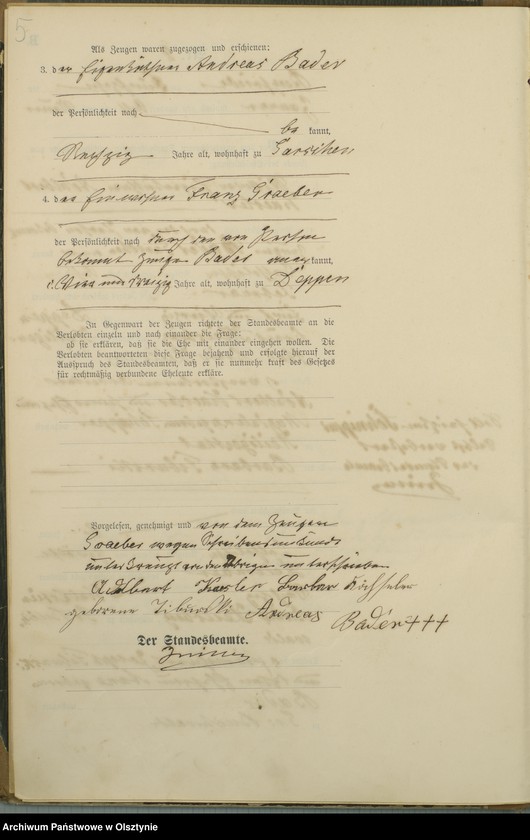 5
Als Zeugen waren zugezogen und erschienen:
3. der Eigenkäthner Andreas Bader
der Persönlichkeit nach
be kannt,
Jahre alt, wohnhaft zu
4. der Einwohner Franz Graeber
der Persönlichkeit nach durch den von Person
bekannt Zeugen Bader kannt,
Vier und Jahre alt, wohnhaft zu Deppen
In Gegenwart der Zeugen richtete der Standesbeamte an die
Verlobten einzeln und nach einander die Frage:
ob sie erklären, daß sie die Ehe mit einander eingehen wollen. Die
Verlobten beantworteten diese Frage bejahend und erfolgte hierauf der
Ausspruch des Standesbeamten, daß er sie nunmehr kraft des Gesetzes
für rechtmäßig verbundene Eheleute erkläre.
Vorgelesen, genehmigt und von dem Zeugen
Graeber wegen Schreibensunkunde
unterkreuzt von den Übrigen unterschrieben
Barbar
geborene Andreas
Bader +++
Der Standesbeamte.
Archiwum Państwowe w Olsztynie